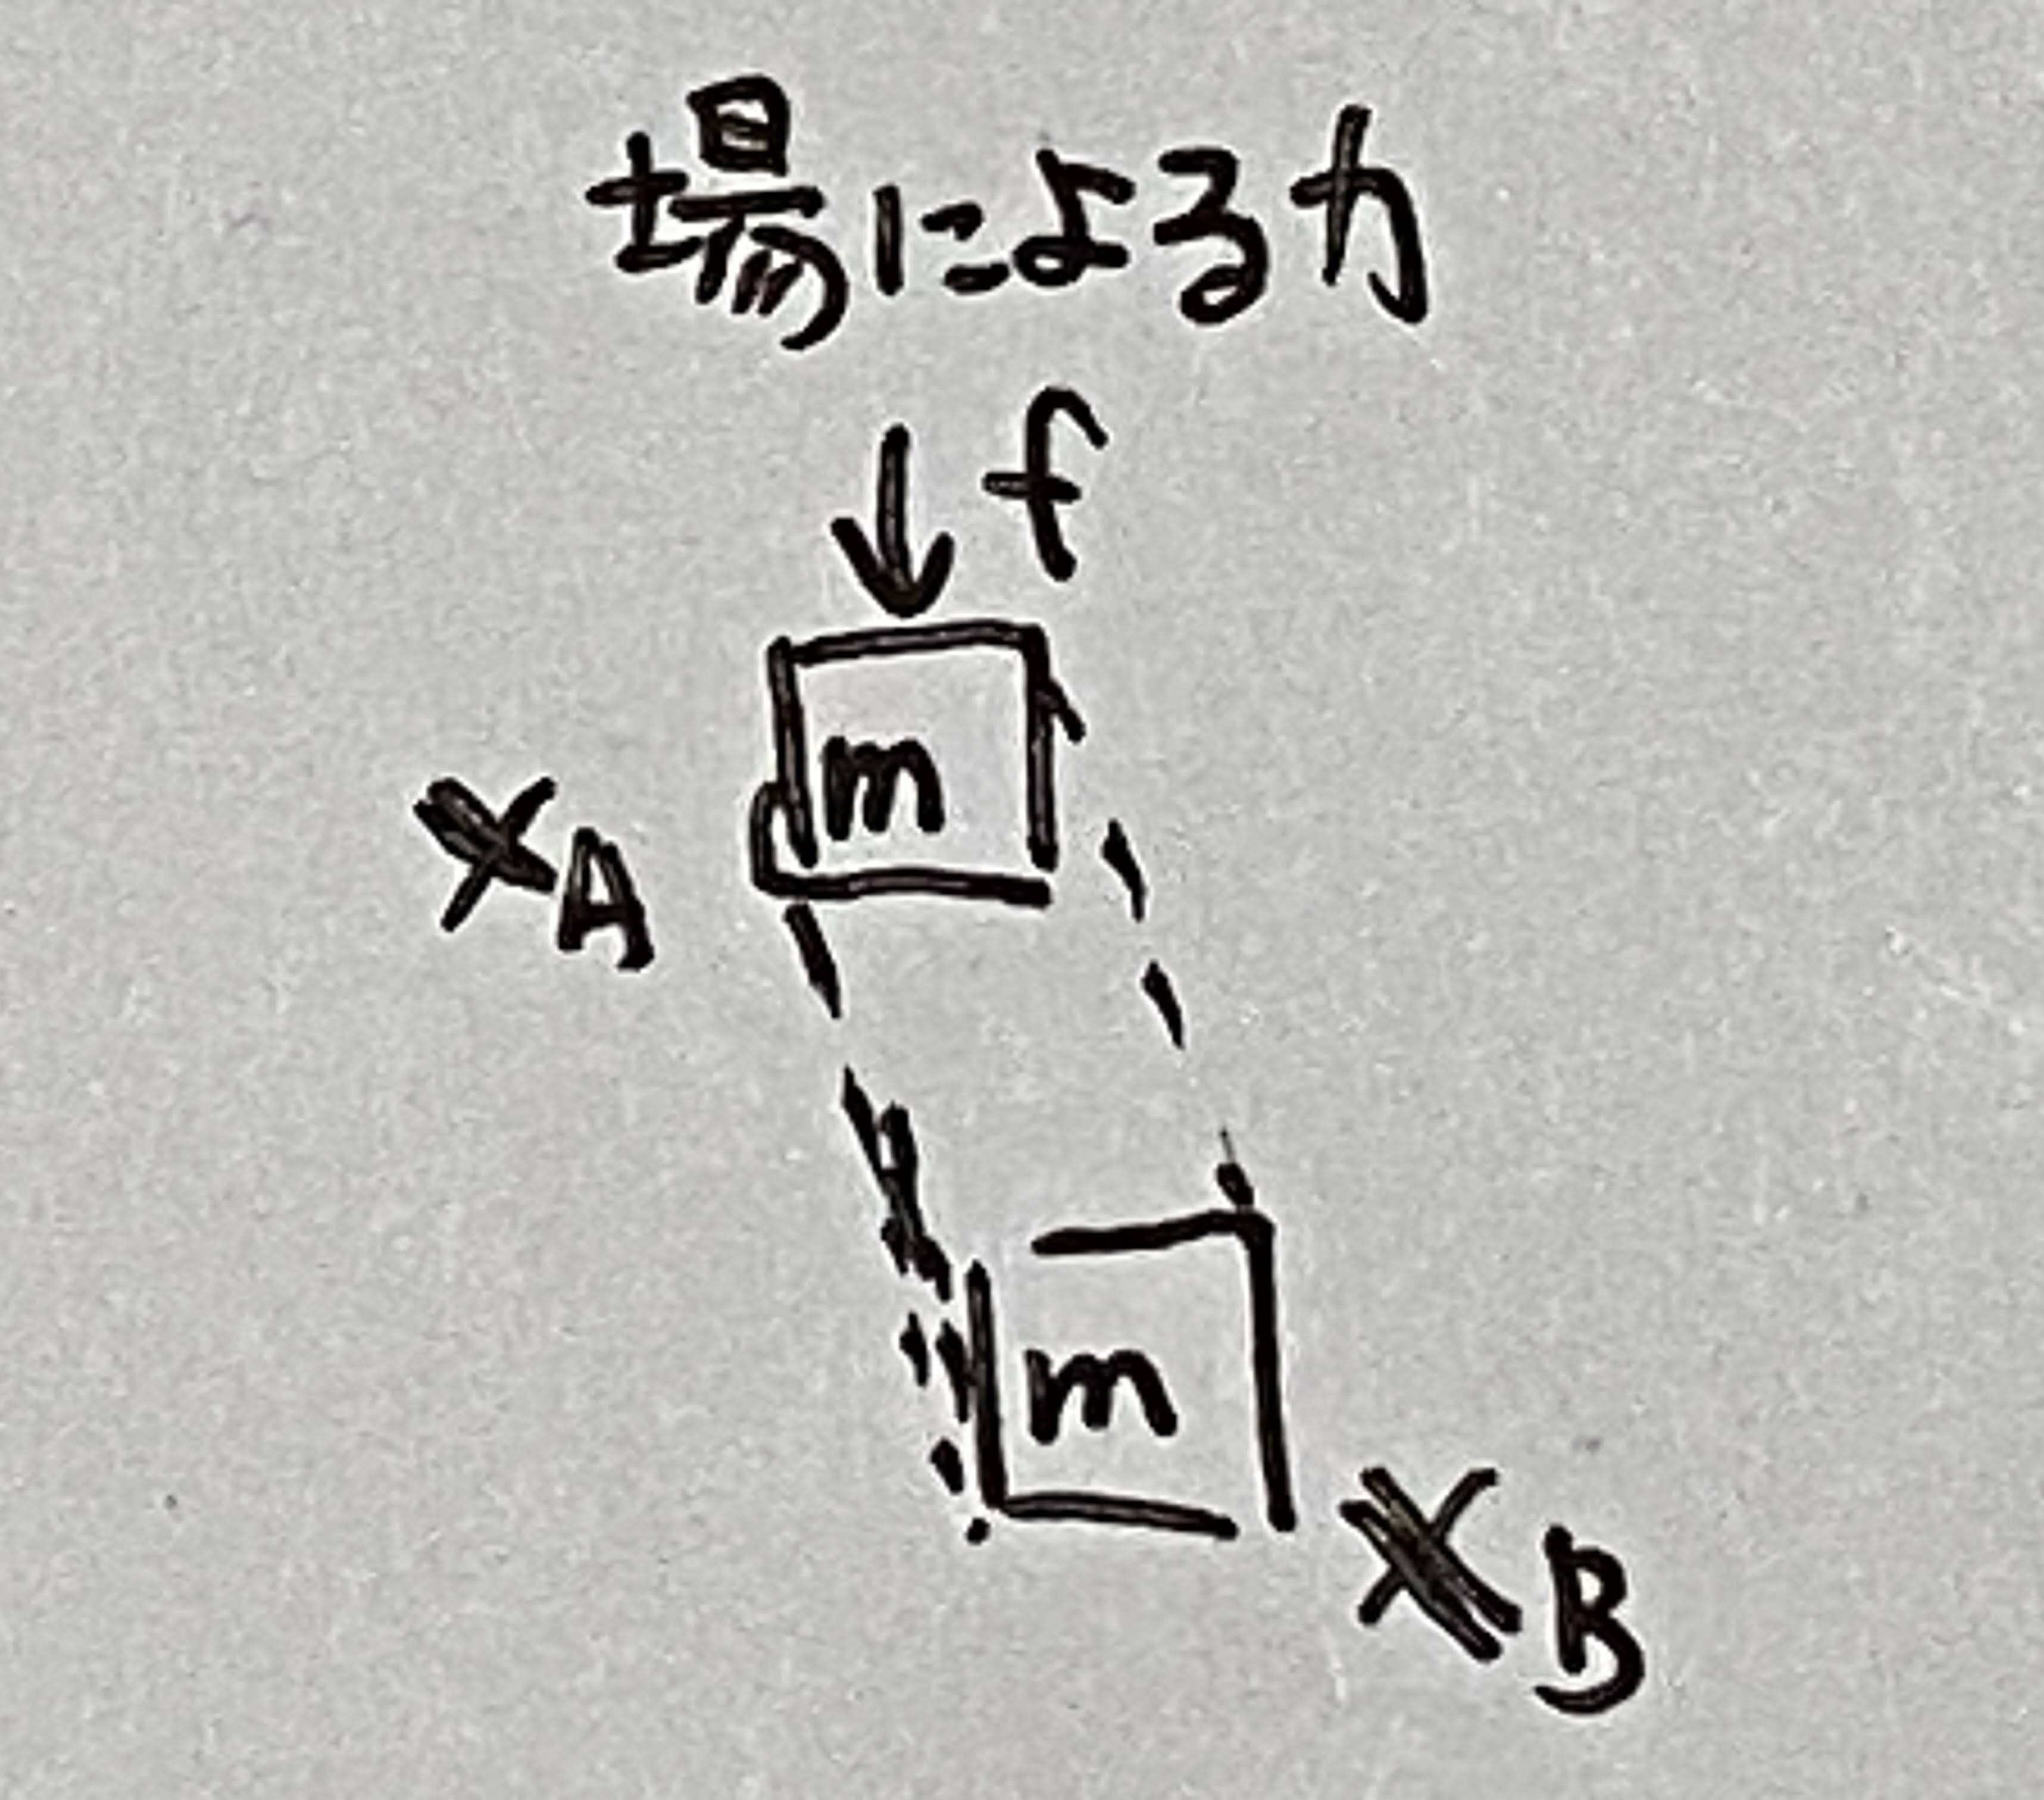 場による力
f
m
xA
m
xB